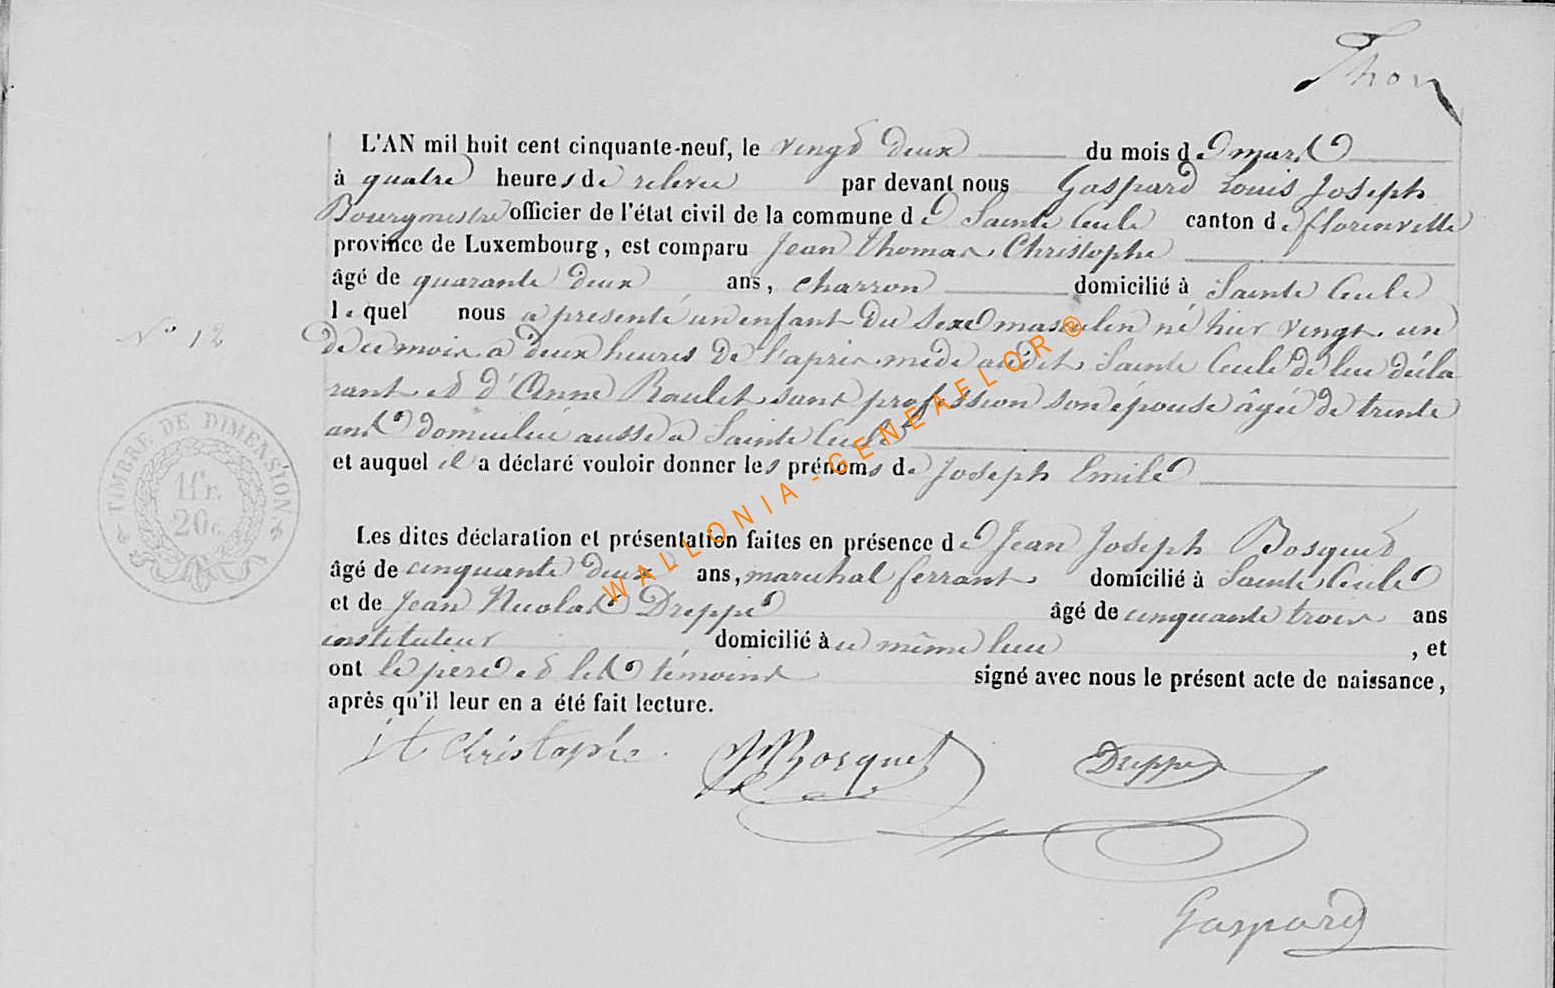 Thon
L'AN mil huit cent cinquante-neuf, le vingt deux du mois de mars
à quatre heures de relevée par devant nous Gaspard Louis Joseph
Bourgmestre officier de l'état civil de la commune de Sainte Cecile canton de florenville
province de Luxembourg, est comparu Jean Thomas Christophe
âgé de quarante deux ans, charron domicilié à Sainte Cecile
lequel nous a présenté un enfant du sexe masculin né hier vingt un
N° 12
de ce mois a deux heures de l'après mede audit Sainte Cecile de lui décla
rant et d'Anne Raulet sans profession son épouse âgée de trente
ans domiciliée aussi a Sainte Cecile
et auquel il a déclaré vouloir donner les prénoms de Joseph Emile
TIMBRE DE DIMENSION
1fr.
20c.
Les dites déclaration et présentation faites en présence de Jean Joseph Bosquet
âgé de cinquante deux ans, maréchal ferrant domicilié à Sainte Cecile
et de Jean Nicolas Dreppe âgé de cinquante trois ans
instituteur domicilié à ce même lieu , et
ont le père et les témoins signé avec nous le présent acte de naissance,
après qu'il leur en a été fait lecture.
Jt Christophe JJBosquet Dreppe
Gaspard
WALLONIA - GENEAELOR ®